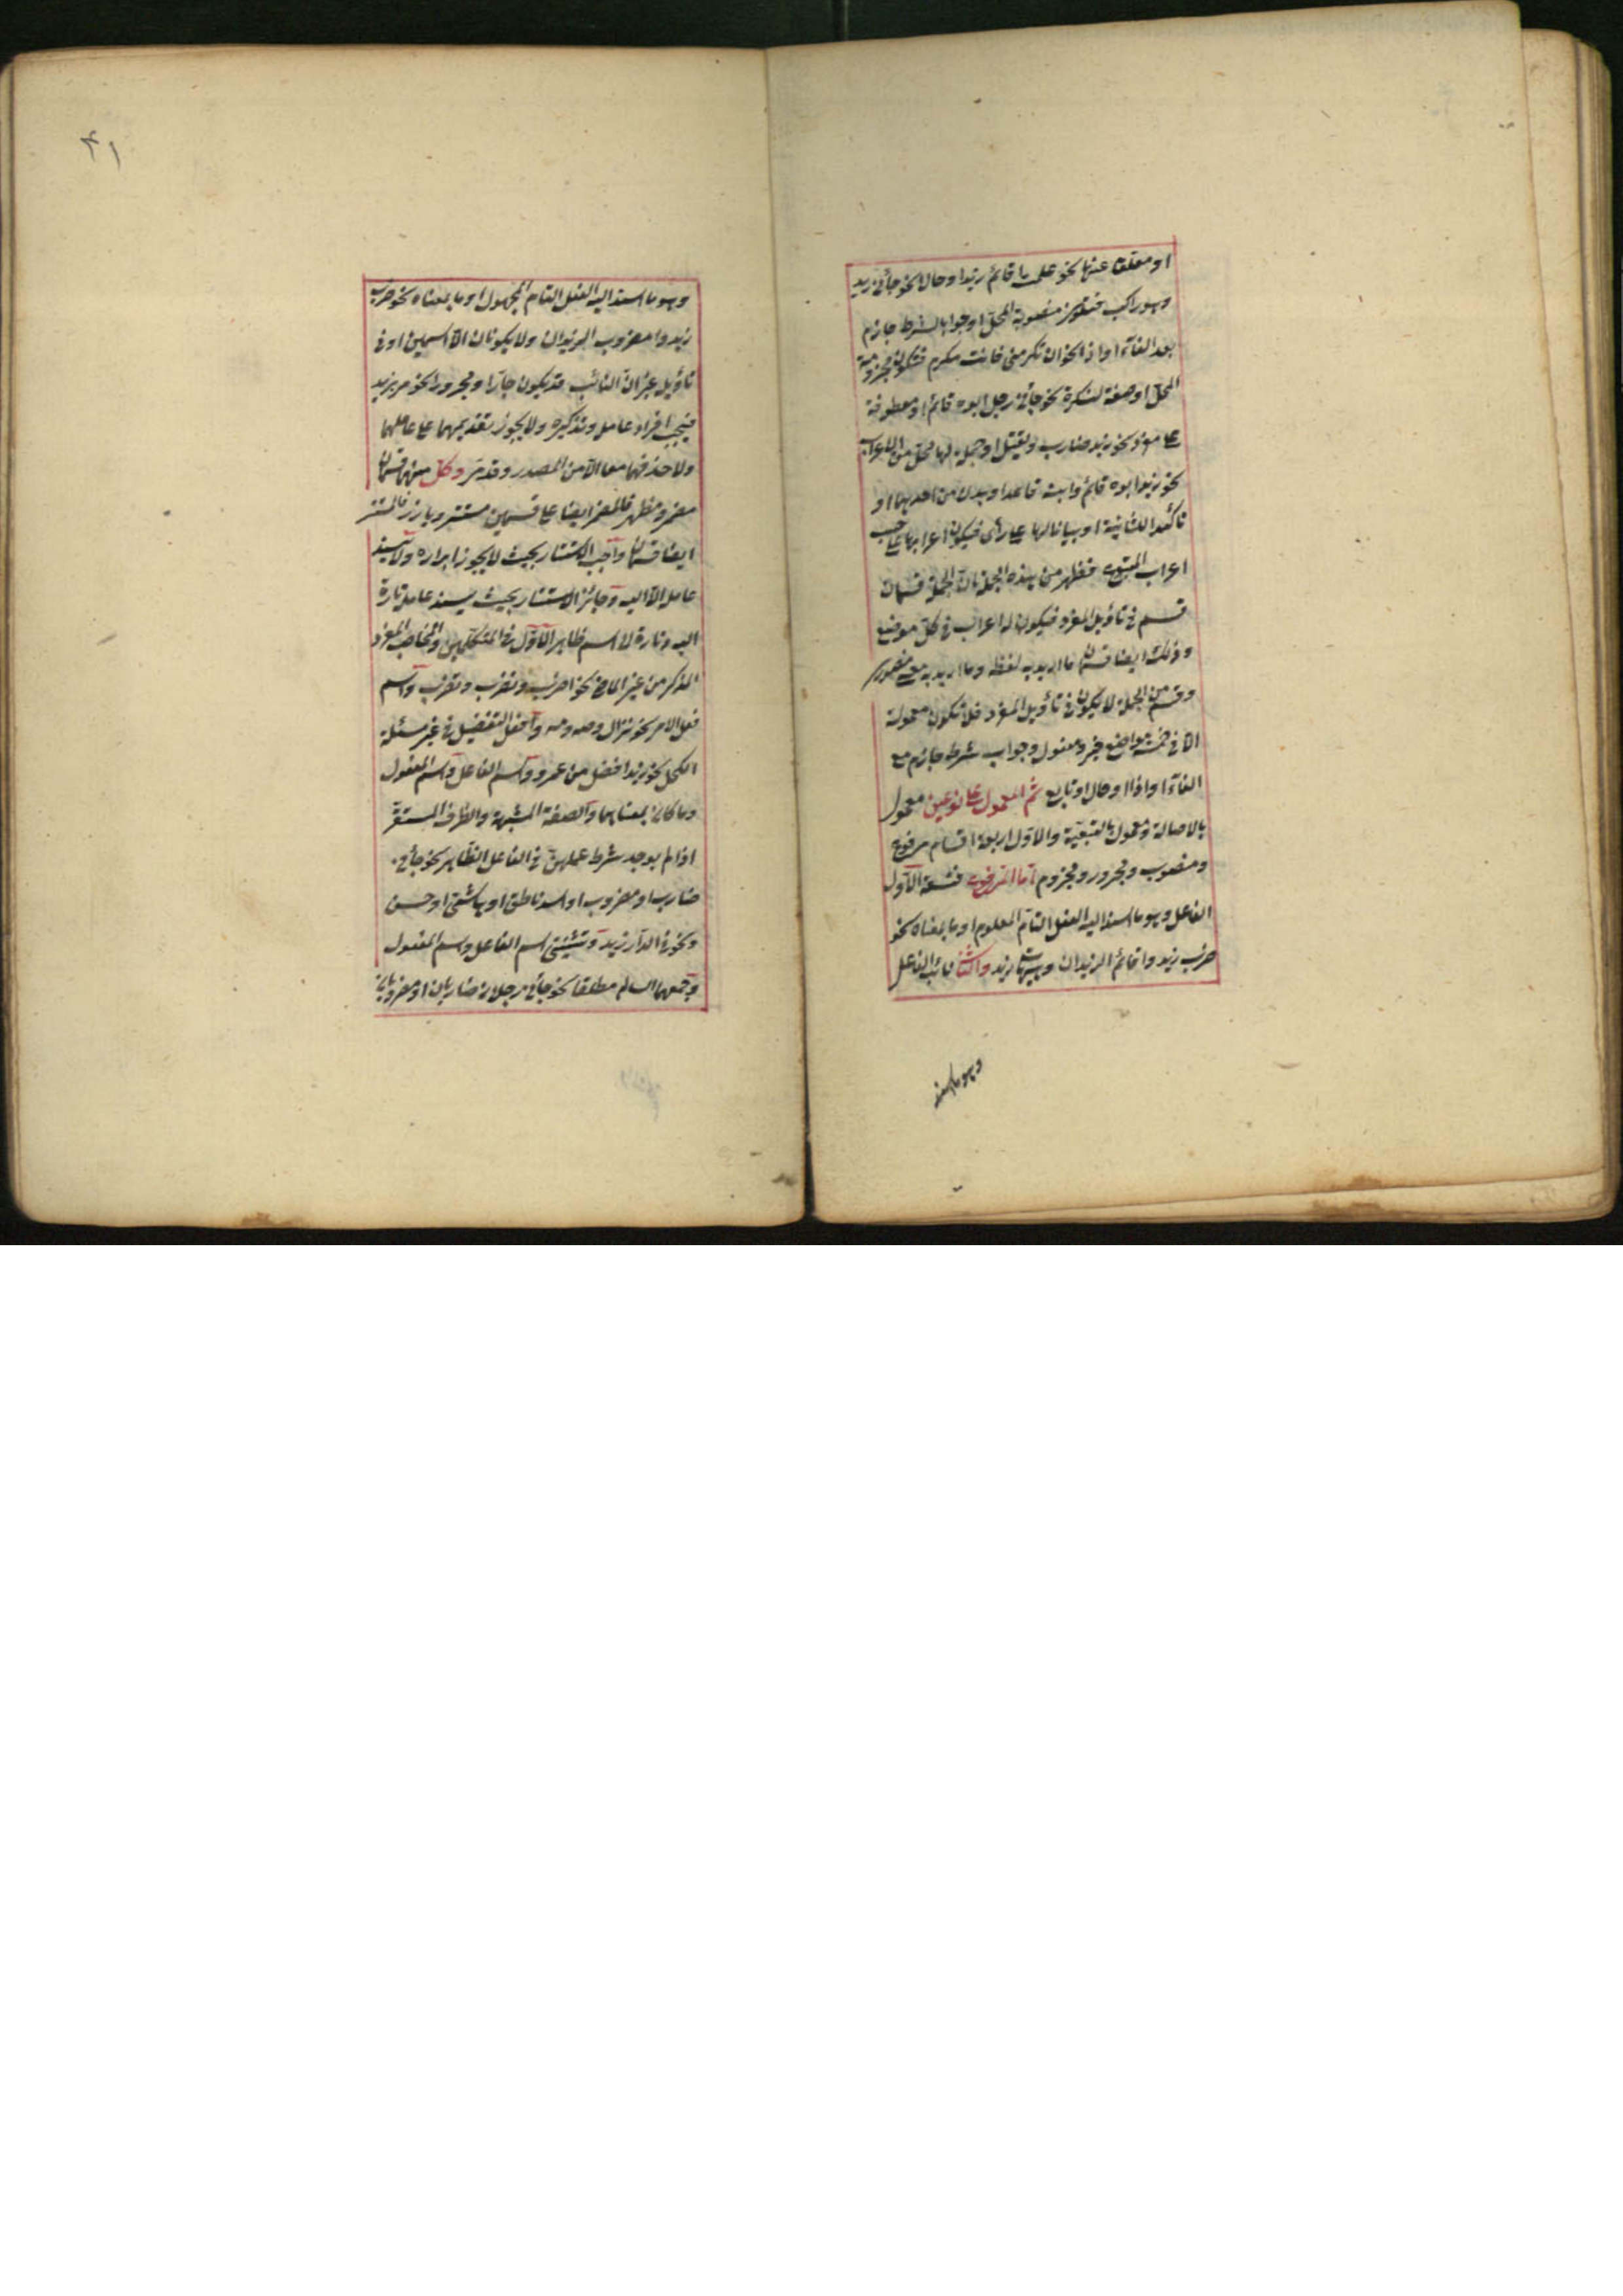 او معلقا عنها نحو علمت ما قائم زيد او حالا نحو جائني زيد
وهو راكب فتكون منصوبة المحل او جوابا لشرط جازم
بعد الفاء او اذا نحو ان تكرمني فانت مكرم فتكون مجزومة
المحل او صفة لنكرة نحو جائني رجل ابوه قائم او معطوفة
على مفرد نحو زيد ضارب ويقتل او جملة لها محل من الاعراب
نحو زيد ابوه قائم وابنه قاعد او بدلا من احديهما او
تأكيدا للثانية او بيانا لها على رأى فيكون اعرابها على حسب
اعراب المتبوع فظهر من هذه الجملة ان الجملة قسمان
قسم في تأويل المفرد فيكون له اعراب في كل موضع
وذلك ايضا قسمان ما اريد به لفظه وما اريد به معنى مصدرى
وقسم من الجملة لا يكون في تأويل المفرد فلا تكون معمولة
الا في خمسة مواضع خبر ومفعول وجواب شرط جازم مع
الفاء او اذا او حال او تابع ثم المعمول على نوعين معمول
بالاصالة ومعمول بالتبعية والاول اربعة اقسام مرفوع
ومنصوب ومجرور ومجزوم اما المرفوع فتسعة الاول
الفاعل وهو ما اسند اليه الفعل التام المعلوم او ما بمعناه نحو
ضرب زيد واقائم الزيدان وهيهات زيد والثاني نائب الفاعل
وهو ما اسند
٤١
وهو ما اسند اليه الفعل التام المجهول او ما بمعناه نحو ضرب
زيد وا مضروب الزيدان ولا يكونان الا اسمين او في
تأويل غير ان النائب قد يكون جارا ومجرورا نحو مر بزيد
فيجب افراد عامله وتذكيره ولا يجوز تقديمهما على عاملهما
ولا حذفهما معا الا من المصدر وقد مر وكل منهما قسمان
مضمر ومظهر فالمضمر ايضا على قسمين مستتر وبارز فالمستتر
ايضا قسمان واجب الاستتار بحيث لا يجوز ابرازه ولا يسند
عامله الا اليه وجائز الاستتار بحيث يسند عامله تارة
اليه وتارة الى اسم ظاهر الاول في المتكلمين والمخاطب المفرد
المذكر من غير الماضي نحو اضرب ونضرب وتضرب واسم
فعل الامر نحو نزال وصه ومه وافعل التفضيل في غير مسئلة
الكحل نحو زيد افضل من عمرو واسم الفاعل واسم المفعول
وما كان بمعناهما والصفة المشبهة والظرف المستقر
اذا لم يوجد شرط عملهن في الفاعل الظاهر نحو جائني
ضارب او مضروب او اسد ناطق او هاشمي او حسن
ونحو في الدار زيد وتثنيتي اسم الفاعل واسم المفعول
وجمعهما السالم مطلقا نحو جائني رجلان ضاربان او مضروبان